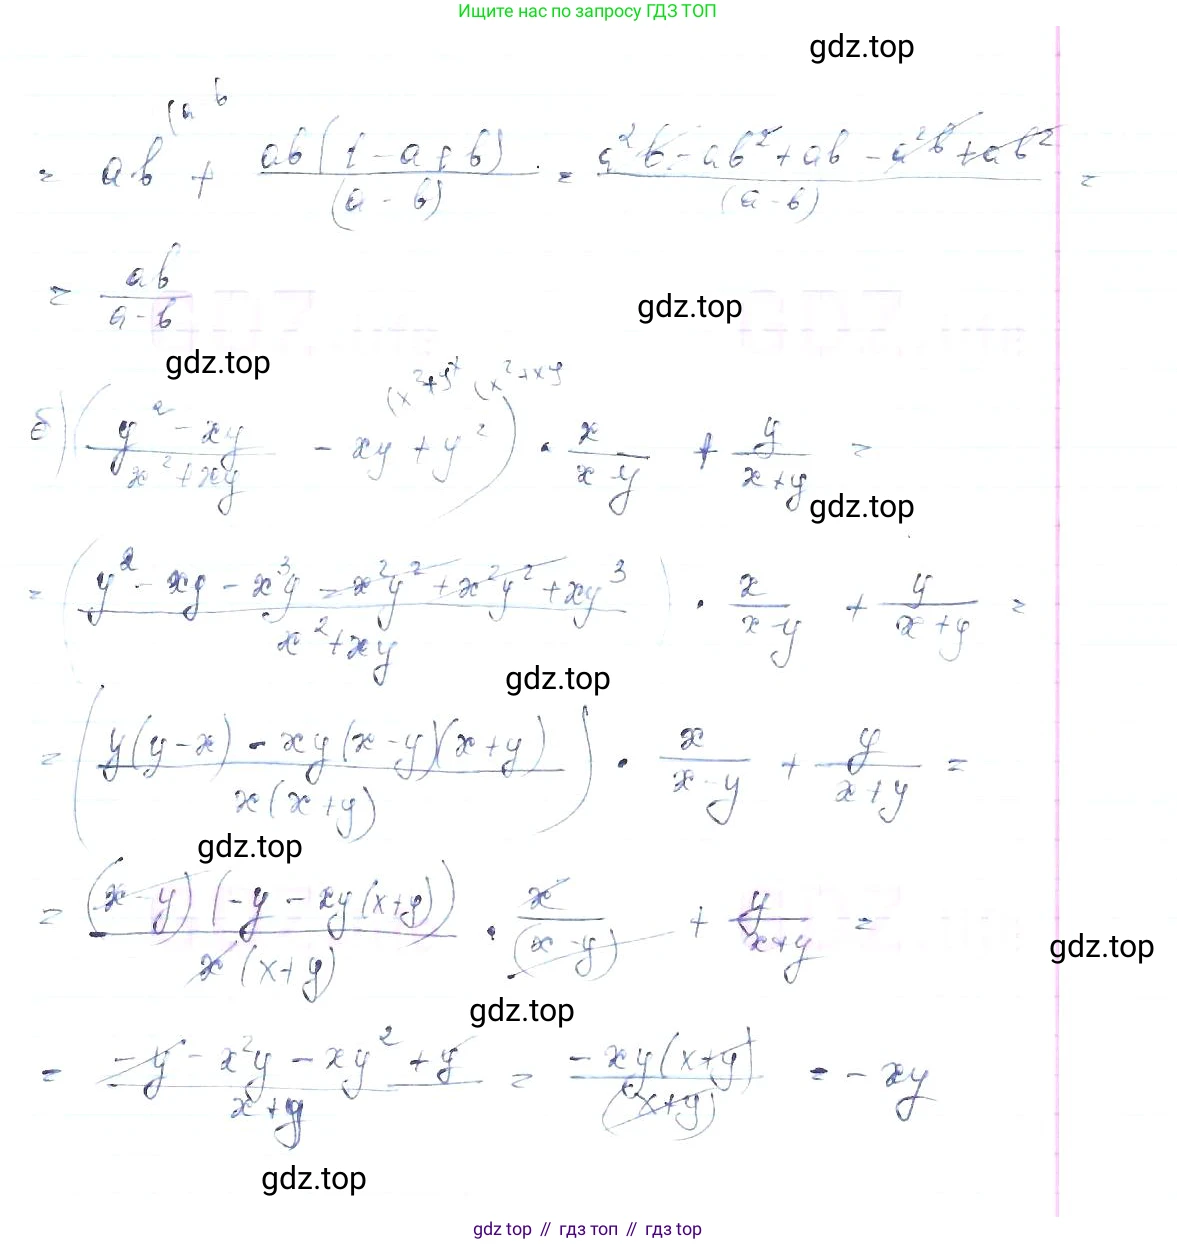 Ищите нас по запросу ГДЗ ТОП
gdz.top
(a b
= ab + ab(1-a+b)/(a-b) = a²b-ab²+ab-a²b+ab²/(a-b) =
= ab/a-b
gdz.top
gdz.top
(x²+y^x (x²+xy
б) (y²-xy/x²+xy - xy + y²) · x/x-y + y/x+y =
gdz.top
= (y²-xy-x³y-x²y²+x²y²+xy³/x²+xy) · x/x-y + y/x+y =
gdz.top
= (y(y-x)-xy(x-y)(x+y)/x(x+y)) · x/x-y + y/x+y =
gdz.top
= (x-y)(-y-xy(x+y))/x(x+y) · x/(x-y) + y/x+y =
gdz.top
gdz.top
= -y-x²y-xy²+y/x+y = -xy(x+y)/(x+y) = -xy
gdz.top
gdz top // гдз топ // гдз top